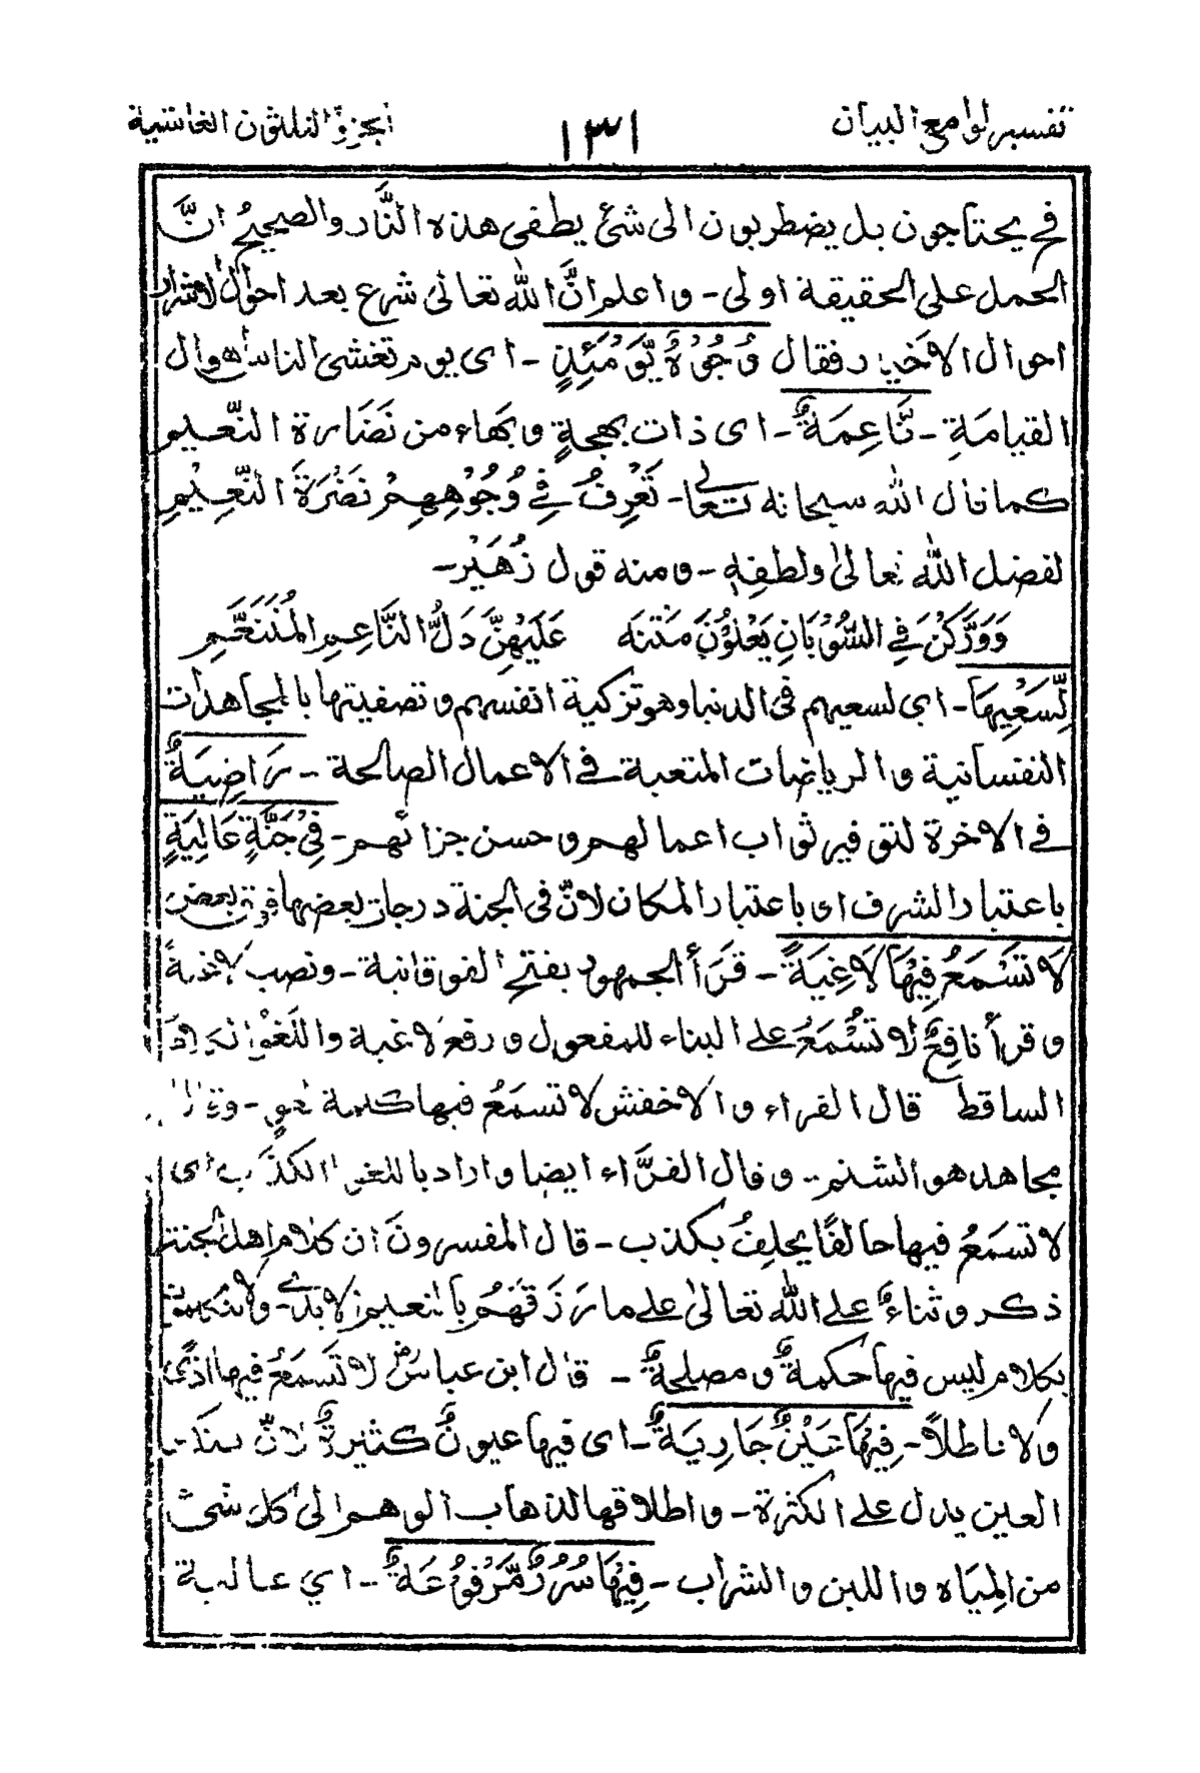 تفسير لوامع البيان ١٣١ الجزؤ الثلثون الغاشية
فح يحتاجون بل يضطربون الى شئ يطفى هذه النَّار والصحيحُ انَّ
الحمل على الحقيقة اولى - واعلم انَّ الله تعالى شرع بعد احوال الاشرار
احوال الاخيار فقال وُجُوْهٌ يَّوْمَئِذٍ - اى يوم تغشى الناس اهوال
القيامَةِ - نَّاعِمَةٌ - اى ذات بهجةٍ وبهاء من نَضَارة النَّعيم
كما قال الله سبحانه تعالى - تَعْرِفُ فِى وُجُوْهِهِمْ نَضْرَةَ النَّعِيْمِ
لفضل الله تعالىٰ ولطفِهٖ - ومنه قول زُهَيْر -
وَوَرَّكْنَ فِى السُّوْبَانِ يَعْلُوْنَ مَتْنَه عَلَيْهِنَّ دَلُّ النَّاعِمِ المُتَنَعَّمِ
لِّسَعْيِهَا - اى لسعيهم فى الدنيا وهو تزكية انفسهم وتصفيتها بالمجاهدات
النفسانية والرياضات المتعبة فى الاعمال الصالحة - رَاضِيَةٌ
فى الاخرة لتوفير ثواب اعمالهم وحسن جزائهم - فِىْ جَنَّةٍ عَالِيَةٍ
باعتبار الشرف اى باعتبار المكان لانّ فى الجنة درجات بعضها فوق بعض
لَا تَسْمَعُ فِيْهَا لَاغِيَةً - قَرَأ الجمهور بفتح الفوقانية - ونصب لاغيةً
وقرأ نافِعٌ لا تُسْمَعُ على البناء للمفعول ورفع لاغية واللَّغْو
الساقط قال الفراء والاخفش لا تسمَعُ فيها كلمة لغوٍ -
مجاهد هو الشتم - وقال الفرَّاء ايضا واراد باللغو الكذب اى
لا تسمَعُ فيها حالفًا يحلِفُ بكذب - قال المفسرونَ ان كلام اهل الجنة
ذكر وثناءٌ على الله تعالىٰ على ما رَزَقَهُم بالنعيم الابدى - ولا تتكلمون
بكلام ليس فيها حكمةٌ ومصلحةٌ - قال ابن عباسٍ لا تَسْمَعُ فيها اذًى
ولا باطلاً - فِيْهَا عَيْنٌ جَارِيَةٌ - اى فيها عيونٌ كثيرةٌ لانّ
العين يدل على الكثرة - واطلاقها لذهاب الوهم الىٰ كل شئ
من المِيَاه واللبن والشراب - فِيْهَا سُرُرٌ مَّرْفُوْعَةٌ - اى عالية